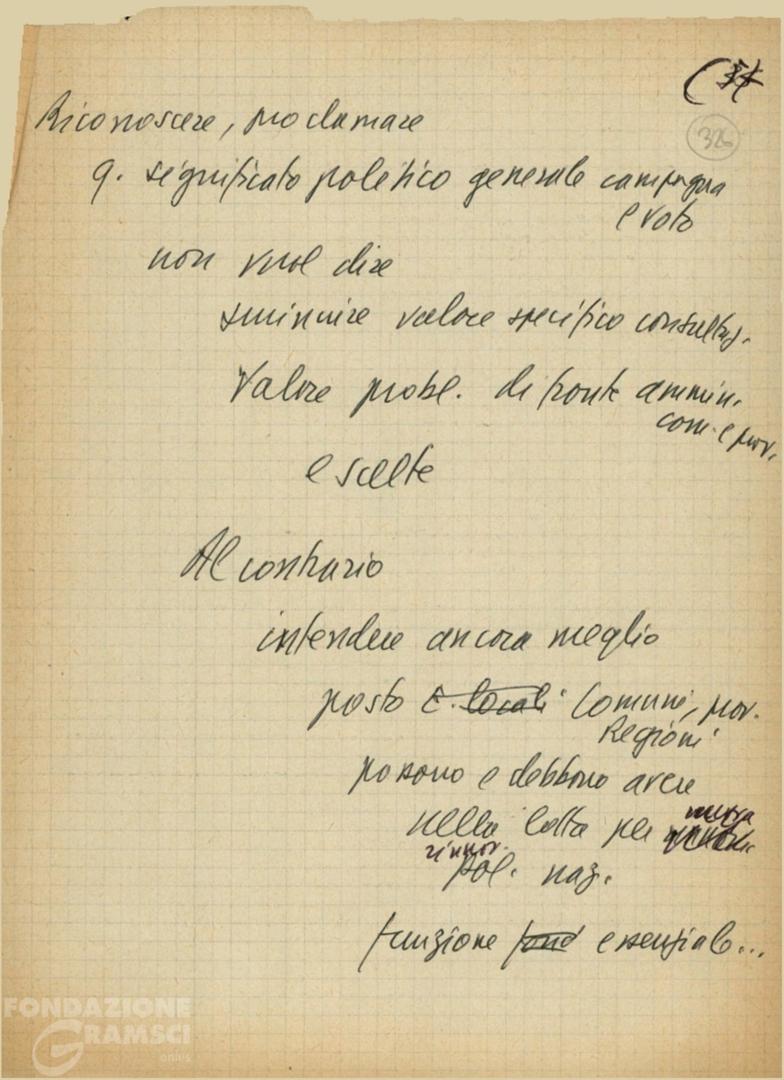 326
Riconoscere, proclamare
q. significato politico generale campagna
e voto
non vuol dire
sminuire valore specifico consultaz.
Valore probl. di fronte ammin.
com. e prov.
e scelte
Al contrario
intendere ancora meglio
posto E. locali Comuni, prov.
Regioni
possono e debbono avere
nella lotta per nuova
rinnov.
pol. naz.
funzione fond essenziale...
FONDAZIONE
GRAMSCI
onlus